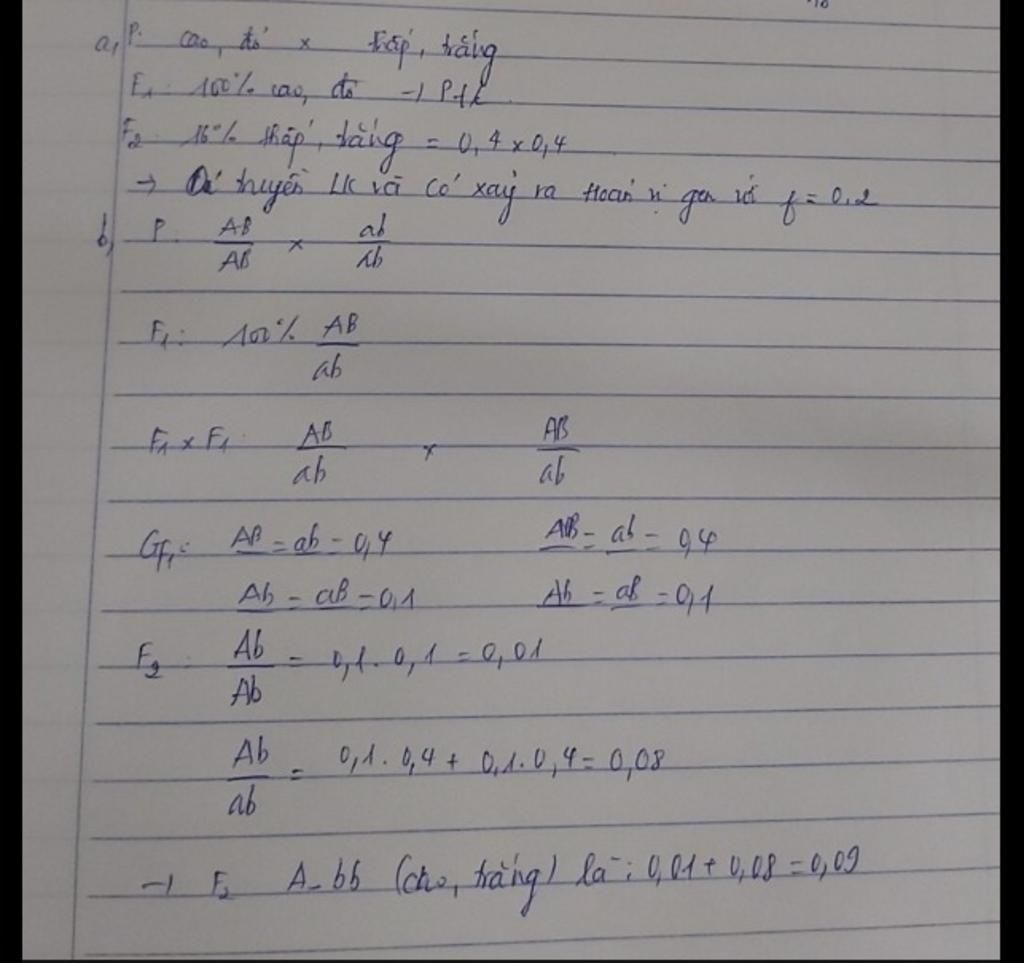 a, P: cao, đỏ × thấp, trắng
F1: 100% cao, đỏ → Ptc
F2: 16% thấp, trắng = 0,4 × 0,4
→ Di truyền LK và có xảy ra Hoán vị gen với f = 0,2
b, P: AB/AB × ab/ab
F1: 100% AB/ab
F1 × F1: AB/ab × AB/ab
GF1: AB = ab = 0,4 AB = ab = 0,4
Ab = aB = 0,1 Ab = aB = 0,1
F2: Ab/Ab = 0,1 . 0,1 = 0,01
Ab/ab = 0,1 . 0,4 + 0,1 . 0,4 = 0,08
→ F2 A-bb (cao, trắng) là: 0,01 + 0,08 = 0,09